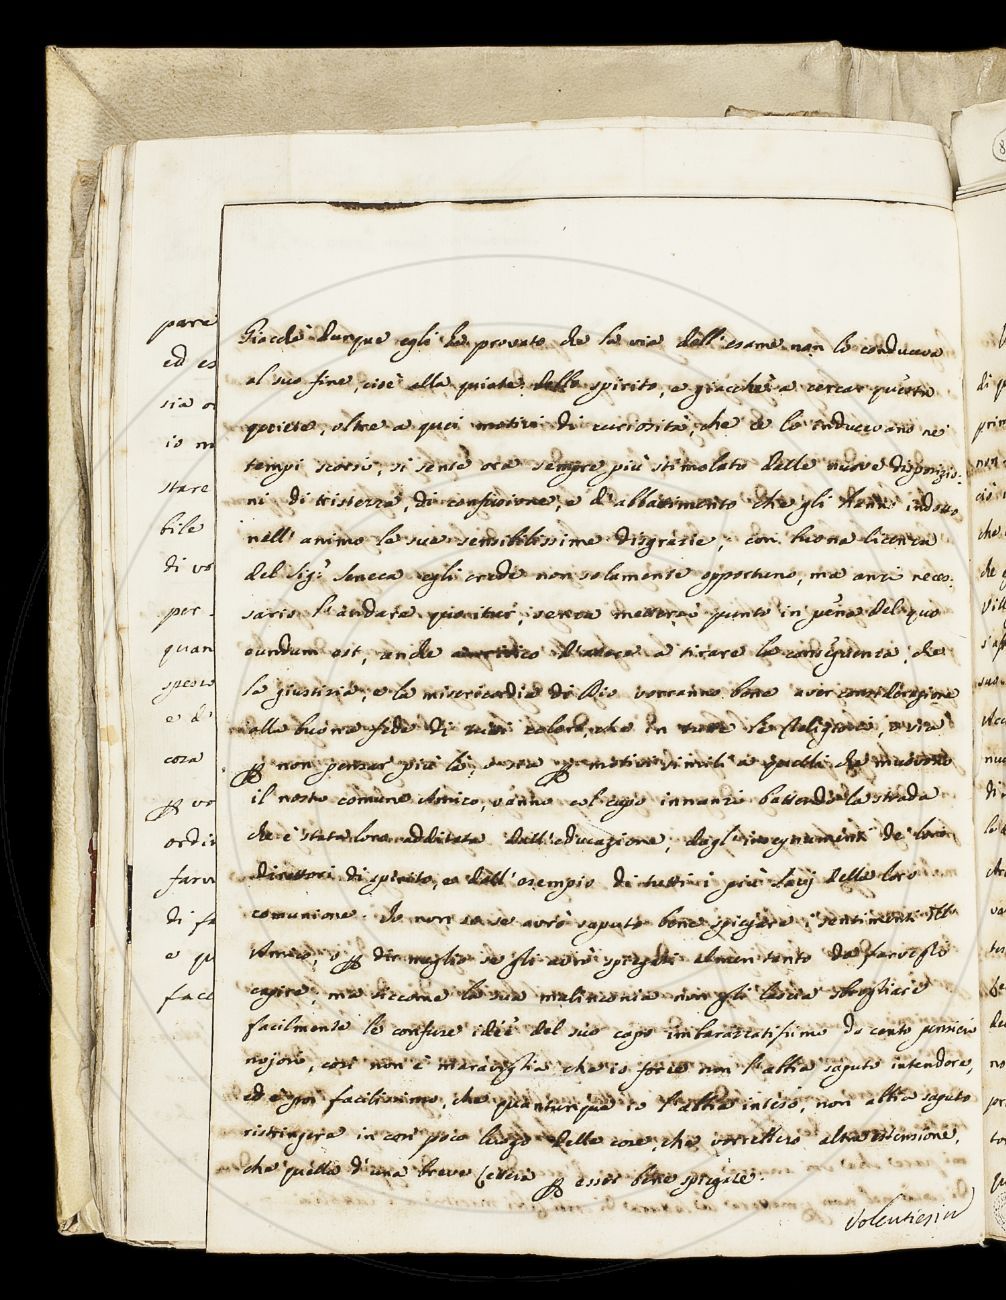 pare
ed es
sia o
io m
stare
bile
di vo
per
quan
spesso
e d
cora
vo
ordi
farv
di fa
e pu
fac
Giacchè dunque egli ha provato che la via dell'esame non lo conduceva
al suo fine, cioè alla quiete dello spirito, e giacchè a cercar questa
quiete, oltre a quei motivi di curiosità, che ce lo inducevano ne'
tempi scorsi, si sente ora sempre più stimolato dalle nuove disposizio-
ni di tristezza, di confusione, e d'abbattimento che gli hanno indotto
nell'animo le sue sensibilissime disgrazie; con buona licenza
del Sig.r Seneca egli crede non solamente opportuno, ma anzi neces-
sario l'andare qua itur, senza mettersi punto in pena del quo
eundum est, anche a tirare la conseguenza, che
la giustizia, e la misericordia di Dio vorranno bene aver considerazione
alla buona fede di tutti coloro, che in tutte le Religioni, o sia
p non pensar più là, o sia p motivi simili a quelli che muovono
il nostro comune Amico, vanno col capo innanzi battendo la strada
che è stata loro additata dall'educazione, dagl'insegnamenti de' loro
direttori di spirito, e dall'esempio di tutti i più savj della loro
comunione. Io non so se avrò saputo bene spiegare i sentimenti dell'
Amico, o p dir meglio se gli avrò spiegati almen tanto da farveglo
capire, ma siccome la sua malinconia non gli lascia sbrogliare
facilmente le confuse idee del suo capo imbarazzatissimo da cento pensieri
nojosi, così non è maraviglia che io forse non l'abbia saputo intendere,
ed è poi facilissimo, che quantunque io l'abbia inteso, non abbia saputo
ristringere in così poco luogo delle cose, che vorrebbero altra estensione,
che quella d'una breve Lettera p esser bene spiegate.
Volentieri